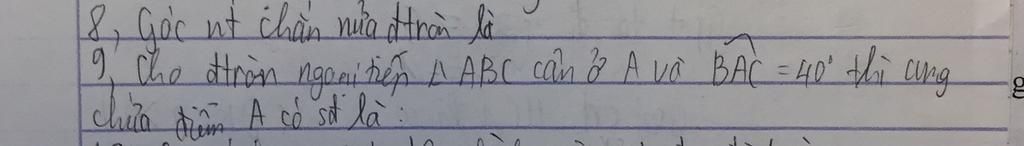 8, Góc nt chắn nửa đtròn là
9, Cho đtròn ngoại tiếp Δ ABC cân ở A và BAC = 40° thì cung
chứa điểm A có sđ là :
g